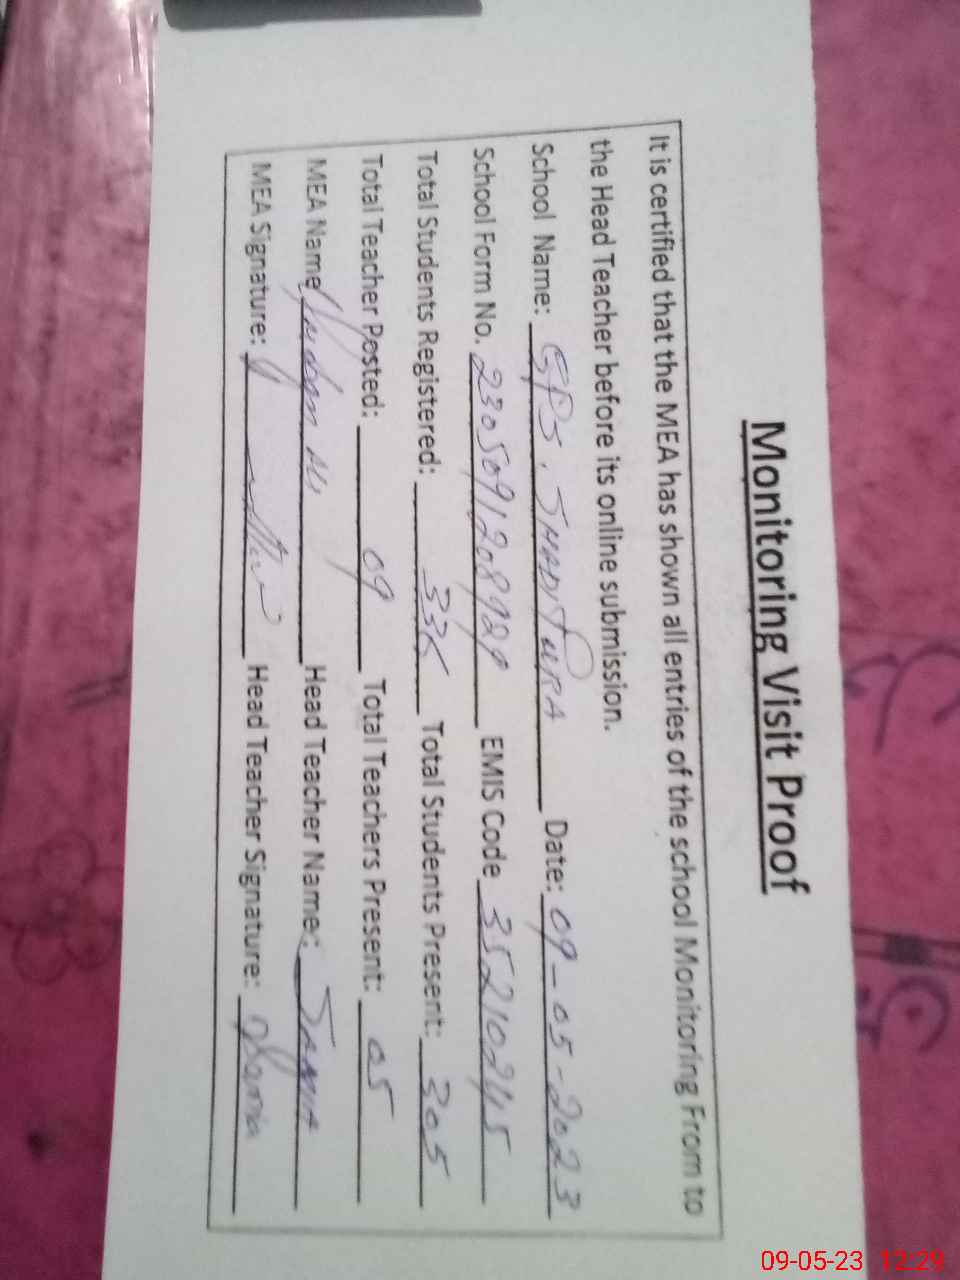 Monitoring Visit Proof
It is certified that the MEA has shown all entries of the school Monitoring From to
the Head Teacher before its online submission.
School Name: GPS, SHADI PURA Date: 09-05-2023
School Form No. 2305091208929 EMIS Code 35210245
Total Students Registered: 335 Total Students Present: 305
Total Teacher Posted: 09 Total Teachers Present: 05
MEA Name Head Teacher Name: SAMIA
MEA Signature: Head Teacher Signature: Samia
09-05-23 12:29